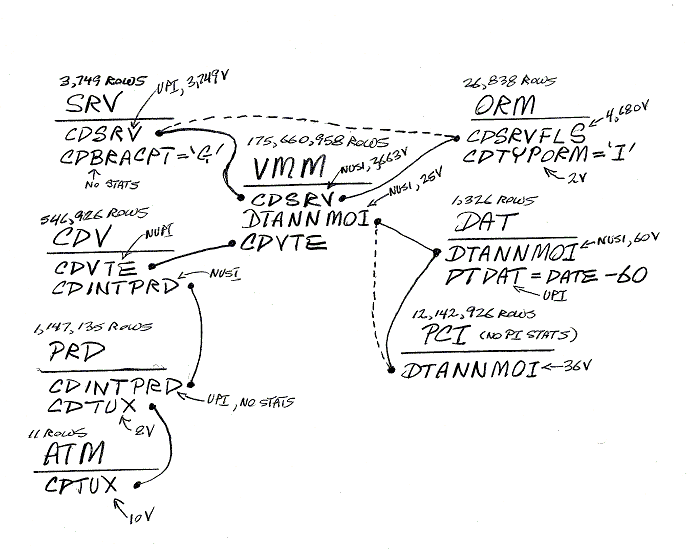 3,749 ROWS
UPI, 3,749V
SRV
CDSRV
CDBRACPT='G'
NO STATS
26,838 ROWS
ORM
4,680V
CDSRVFLS
CDTYPORM='I'
2V
175,660,958 ROWS
VMM
NUSI, 2663V
NUSI, 25V
CDSRV
DTANNMOI
CDVTE
546,926 ROWS
CDV
NUPI
CDVTE
CDINTPRD
NUSI
1,326 ROWS
DAT
DTANNMOI
NUSI, 60V
DTDAT = DATE -60
UPI
12,142,926 ROWS
PCI (NO PI STATS)
DTANNMOI
36V
1,147,135 ROWS
PRD
CDINTPRD
UPI, NO STATS
CDTUX
2V
11 ROWS
ATM
CDTUX
10V